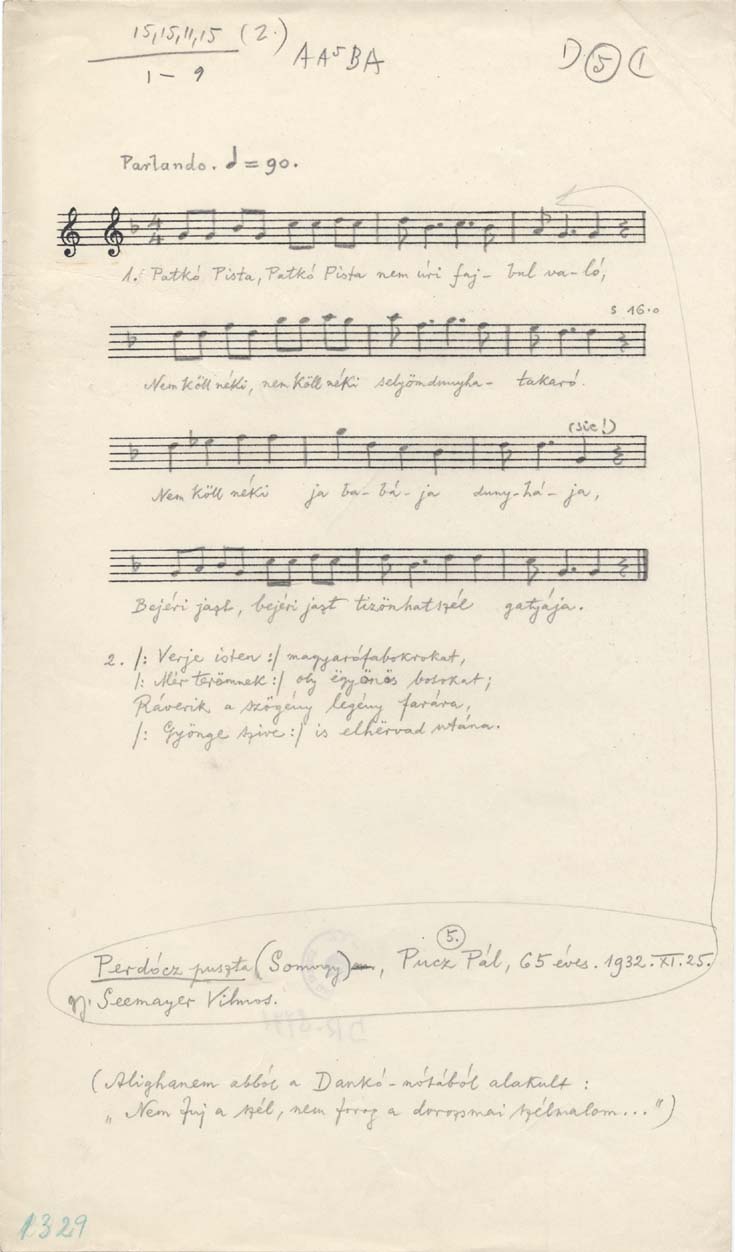 15,15,11,15 (2.)
1 – 9
A A⁵ B A
D ⑤ (1
Parlando. ♩ = 90.
1. Patkó Pista, Patkó Pista nem úri faj- bul va-ló,
s 16.o
Nem köll néki, nem köll néki selyömdunyha- takaró.
(sic!)
Nem köll néki ja ba-bá-ja duny-há-ja,
Bejéri jazt, bejéri jazt tizönhatszél gatyája.
2. /: Verje isten :/ magyarófabokrokat,
/: Mér terömnek :/ oly ëgyönös botokat;
Ráverik a szögény legény farára,
/: Gyönge szive :/ is elhërvad utána.
5.
Perdócz puszta (Somogy), Pucz Pál, 65 éves. 1932. XI. 25.
gy. Seemayer Vilmos.
(Alighanem abból a Dankó-nótából alakult :
„Nem fuj a szél, nem forog a dorozsmai szélmalom...")
1329